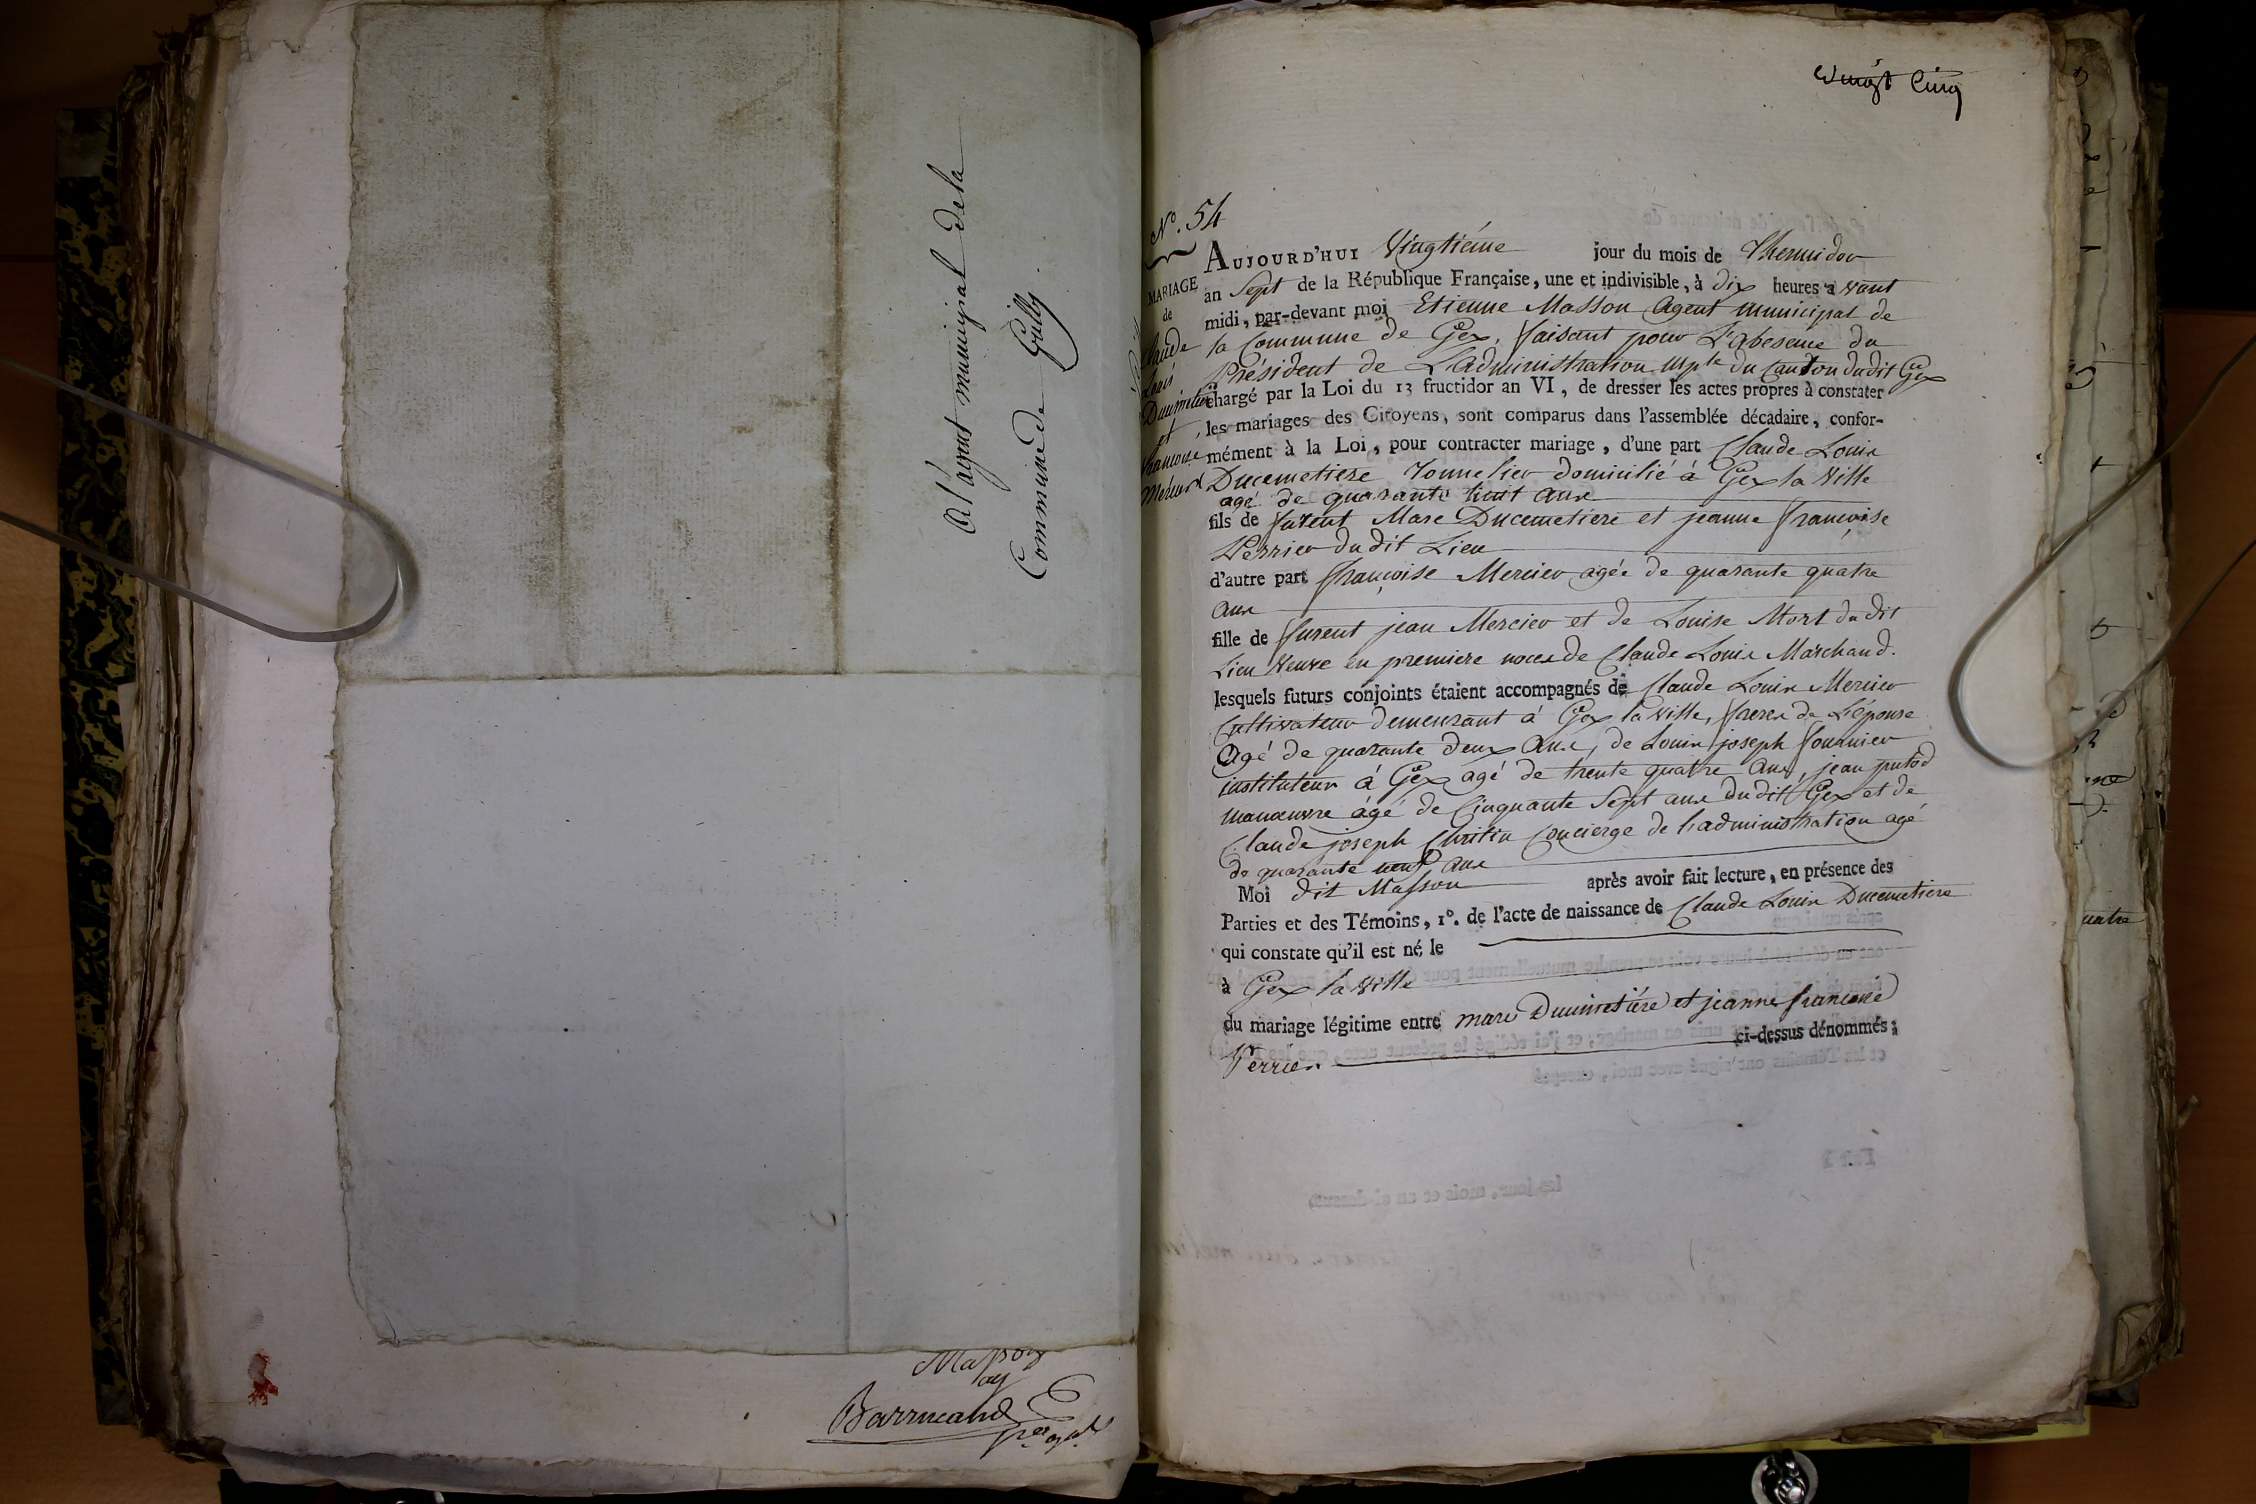 al'agent municipal de la
Commune de Gilly.
Masson
ay
Barrucand
vingt Cinq
N°. 54
MARIAGE
de
Claude
Louis
Ducimetière
et
francoise
Mercier
AUJOURD'HUI Vingtiéme jour du mois de Thermidor
an Sept de la République Française, une et indivisible, à dix heures avant
midi, par-devant moi Etienne Masson Agent municipal de
la Commune de Gex, faisant pour L'abesence du
Président de L'administration mple du Canton dudit Gex
chargé par la Loi du 13 fructidor an VI, de dresser les actes propres à constater
les mariages des Citoyens, sont comparus dans l'assemblée décadaire, confor-
mément à la Loi, pour contracter mariage, d'une part Claude Louis
Ducemetiere Tonnelier domicilié à Gex la Ville
agé de quarante huit ans
fils de furent Marc Ducemetiere et jeanne françoise
Perrier dudit Lieu
d'autre part françoise Mercier agée de quarante quatre
ans
fille de furent jean Mercier et de Louise Mort dudit
Lieu Veuve en premiere noces de Claude Louis Marchand.
lesquels futurs conjoints étaient accompagnés de Claude Louis Mercier
Cultivateur demeurant à Gex la ville, freres de L'épouse
Agé de quarante deux ans, de Louis joseph fournier
instituteur à Gex agé de trente quatre ans, jean putod
manœuvre agé de Cinquante Sept ans dudit Gex et de
Claude joseph Christin Concierge de L'administration agé
de quarante neuf ans
Moi dit Masson après avoir fait lecture, en présence des
Parties et des Témoins, 1°. de l'acte de naissance de Claude Louis Ducemetiere
qui constate qu'il est né le
à Gex la ville
du mariage légitime entre marc Ducimetiére et jeanne francoise
Perrier ci-dessus dénommés;